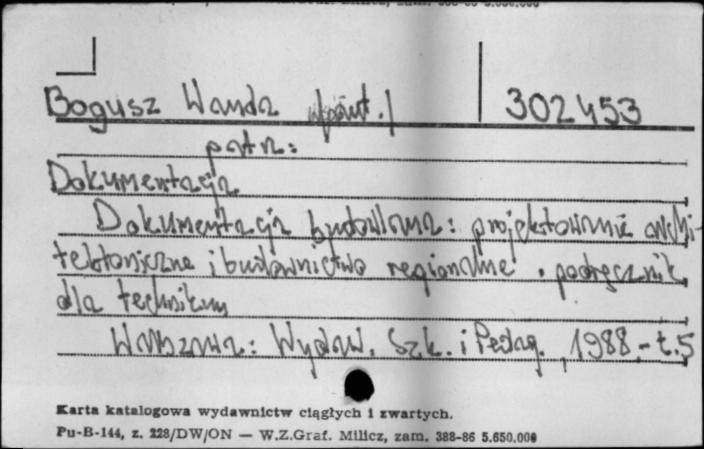 Bogusz Wanda współaut. / 302453
patrz:
Dokumentacja
Dokumentacja budowlana: projektowanie archi-
tektoniczne i budownictwo regionalne . podręcznik
dla technikum
Warszawa: Wydaw. Szk. i Pedag., 1988.- t.5
Karta katalogowa wydawnictw ciągłych i zwartych.
Pu-B-144, z. 228/DW/ON — W.Z.Graf. Milicz, zam. 388-86 5.650.000